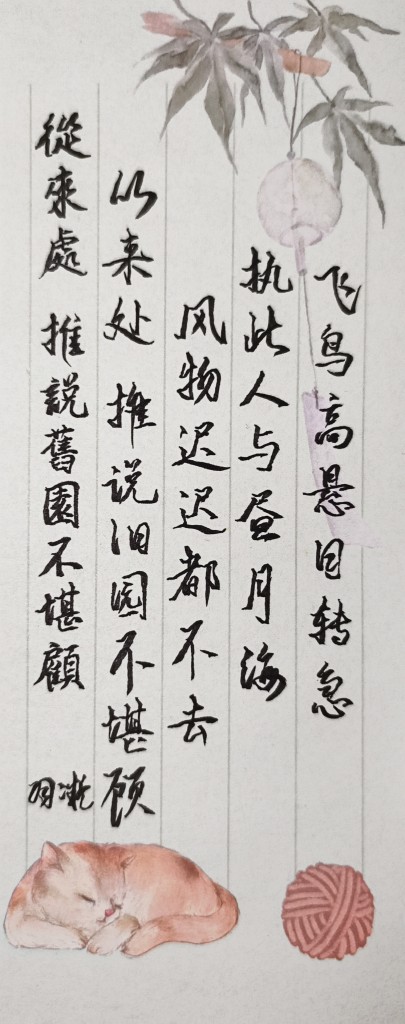 飞鸟高悬日转急
执此人与昼月海
风物迟迟都不去
从来处 推说旧园不堪顾
從來處 推說舊園不堪顧